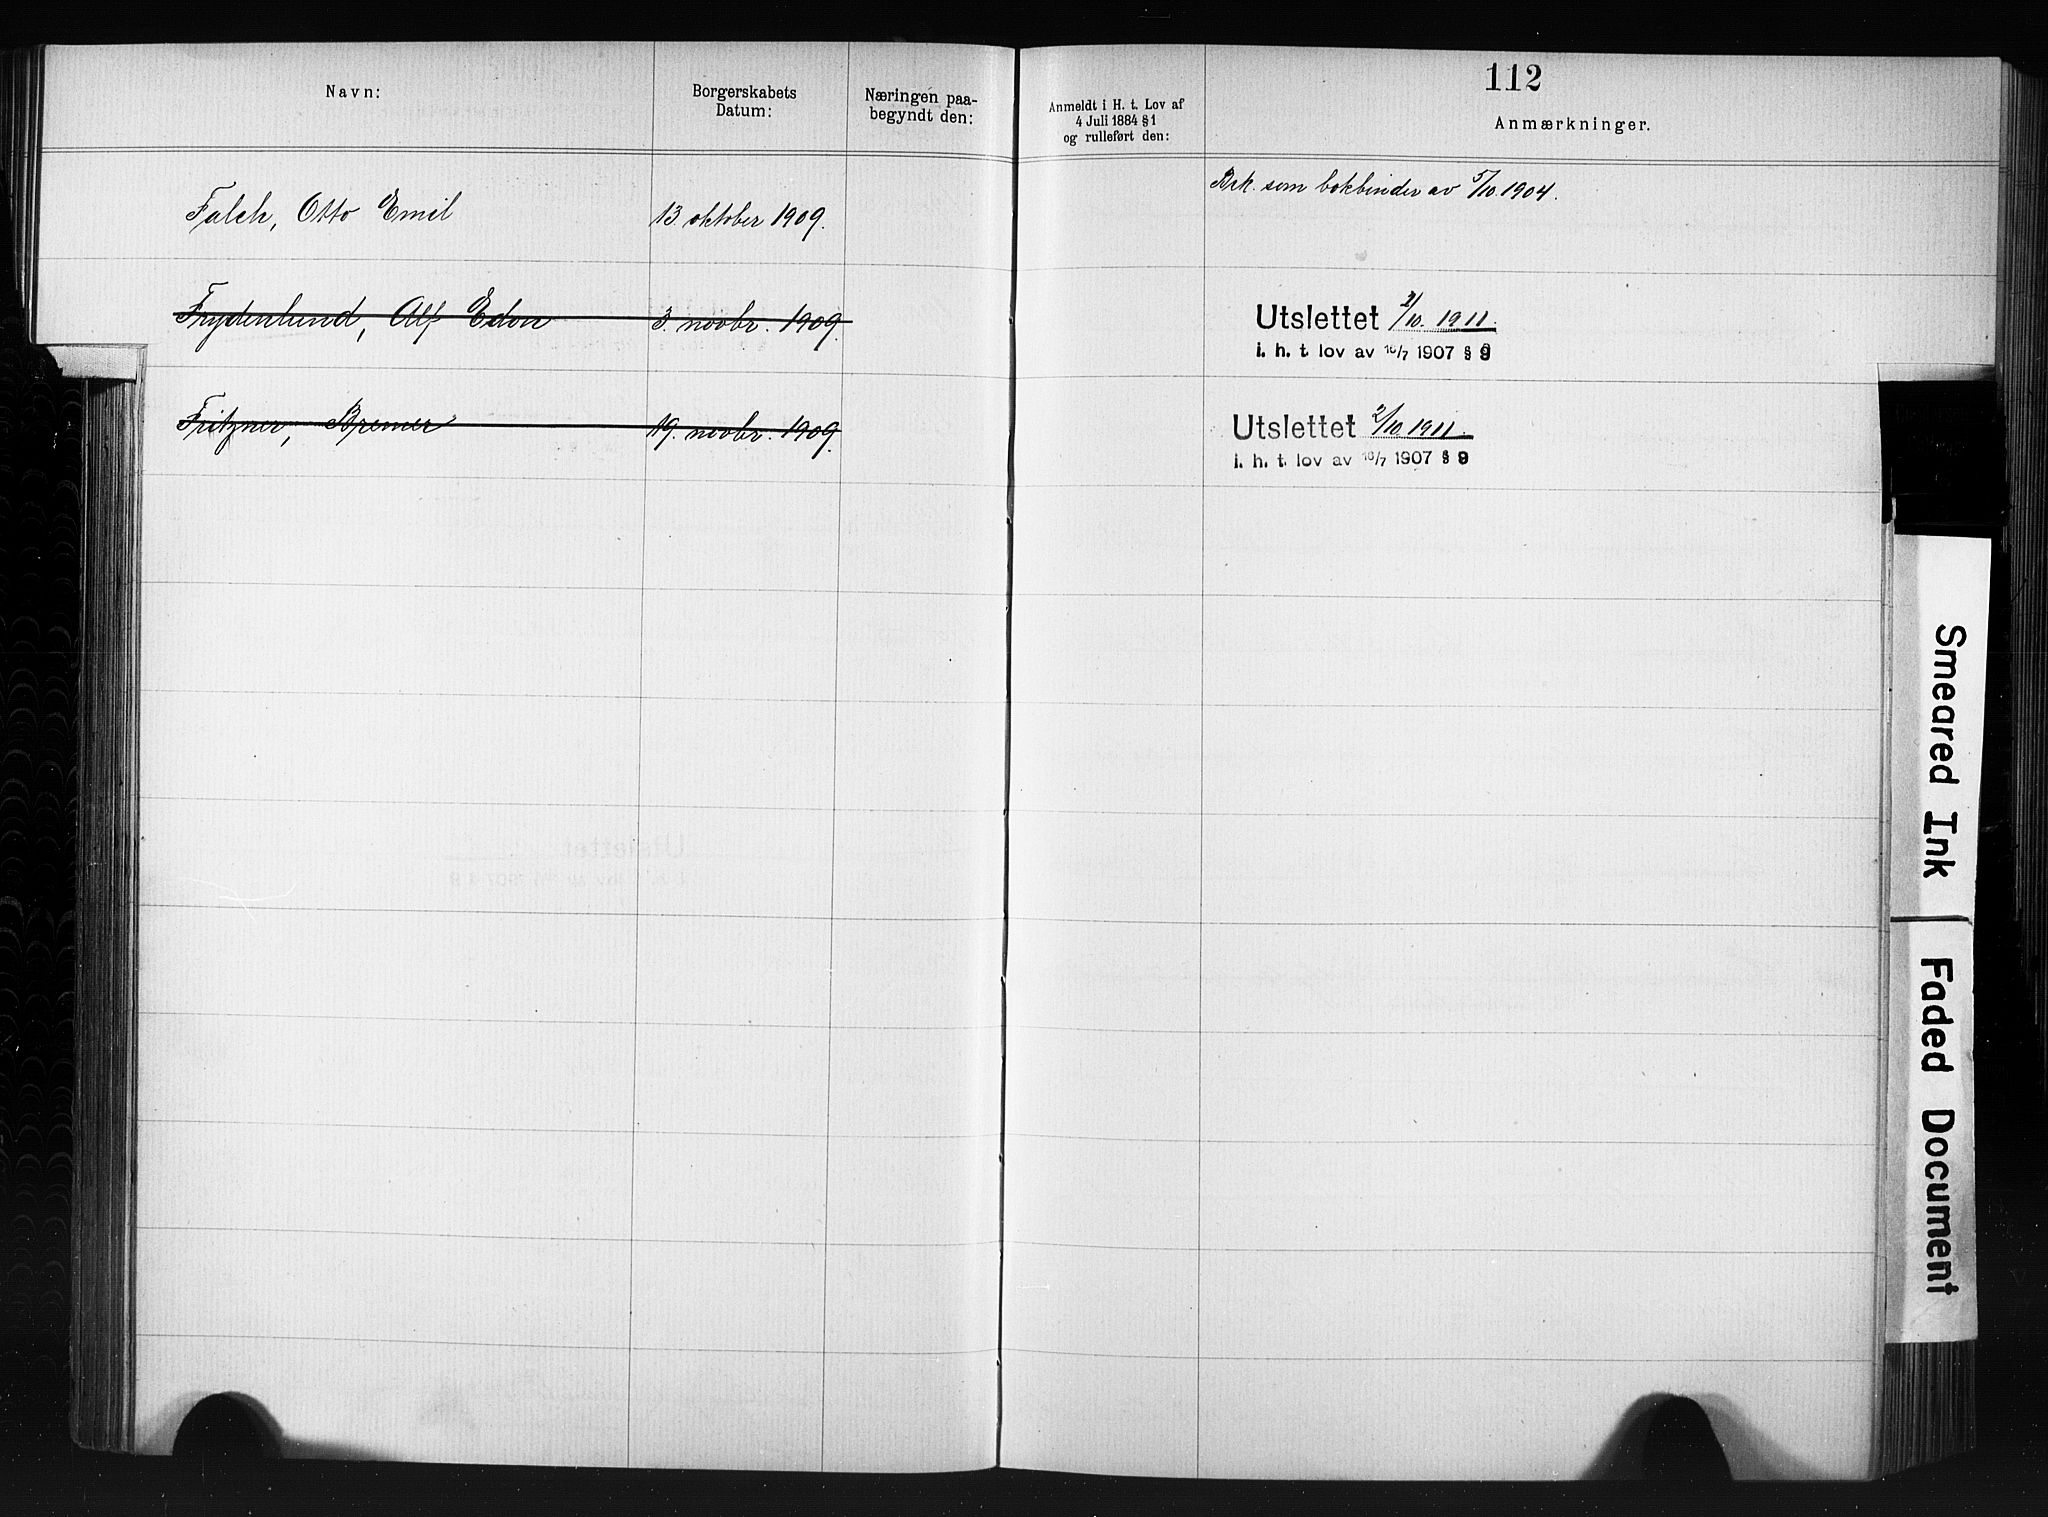 112
Navn:
Borgerskabets
Datum:
Næringen paa-
begyndt den:
Anmeldt i H. t. Lov af
4 Juli 1884 § 1
og rulleført den:
Anmærkninger.
Falch, Otto Emil
13. oktober 1909.
Brk. som bokbinder av 5/10.1904.
Frydenlund, Alf Edon
3. novbr. 1909.
Utslettet 2/10. 1911.
i. h. t. lov av 16/7 1907 § 9
Fritzner, Bremer
19. novbr. 1909.
Utslettet 2/10. 1911.
i. h. t. lov av 16/7 1907 § 9
Smeared Ink
Faded Document